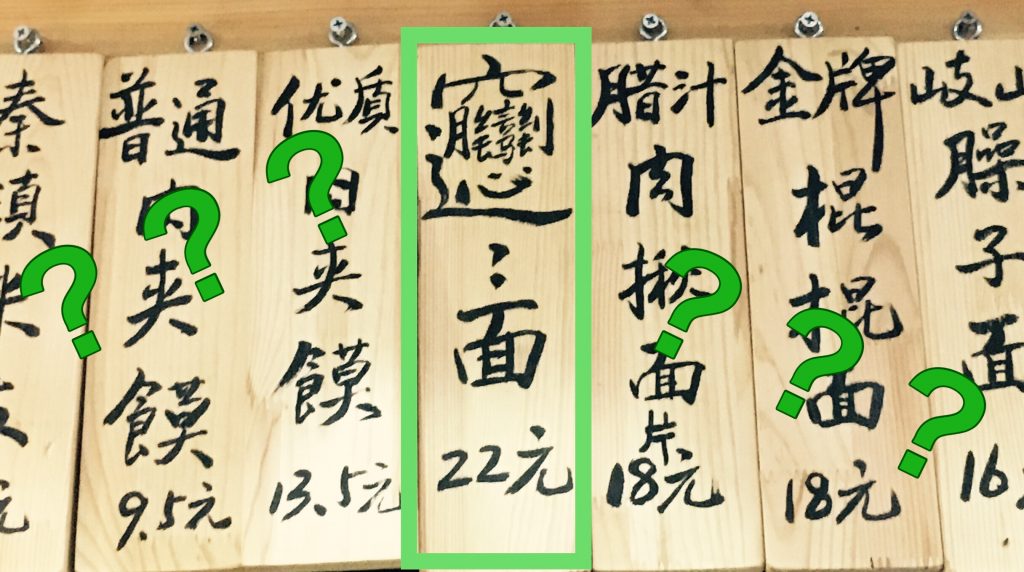 秦镇米皮元
普通肉夹馍9.5元
优质肉夹馍13.5元
𰻞：面22元
腊汁肉揪面片18元
金牌棍棍面18元
岐山臊子面16